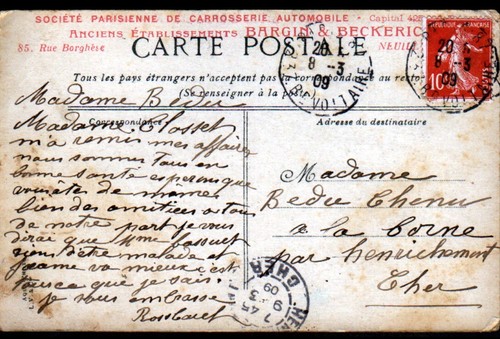 SOCIÉTÉ PARISIENNE DE CARROSSERIE AUTOMOBILE - Capital 425
Anciens Établissements BARGIN & BECKERIC
85, Rue Borghèse NEUIL
CARTE POSTALE
Tous les pays étrangers n'acceptent pas la correspondance au recto
(Se renseigner à la poste)
20
8 - 3
09
R. VOLTAIRE
10
Correspondance
Adresse du destinataire
Madame Bedu
Madame Closset
m'a remis mes affaires
nous sommes tous en
bonne santé esperons que
vous êtes de même
bien des amitiées a tous
de notre part je vous
dirai que Mme
d'être malade
Jeanne va mieux c'est
tousce que je sais.
je vous embrasse
Madame
Bedu Chenu
à la Borne
par henrichement
Cher
7 45
9 3
09
CHER